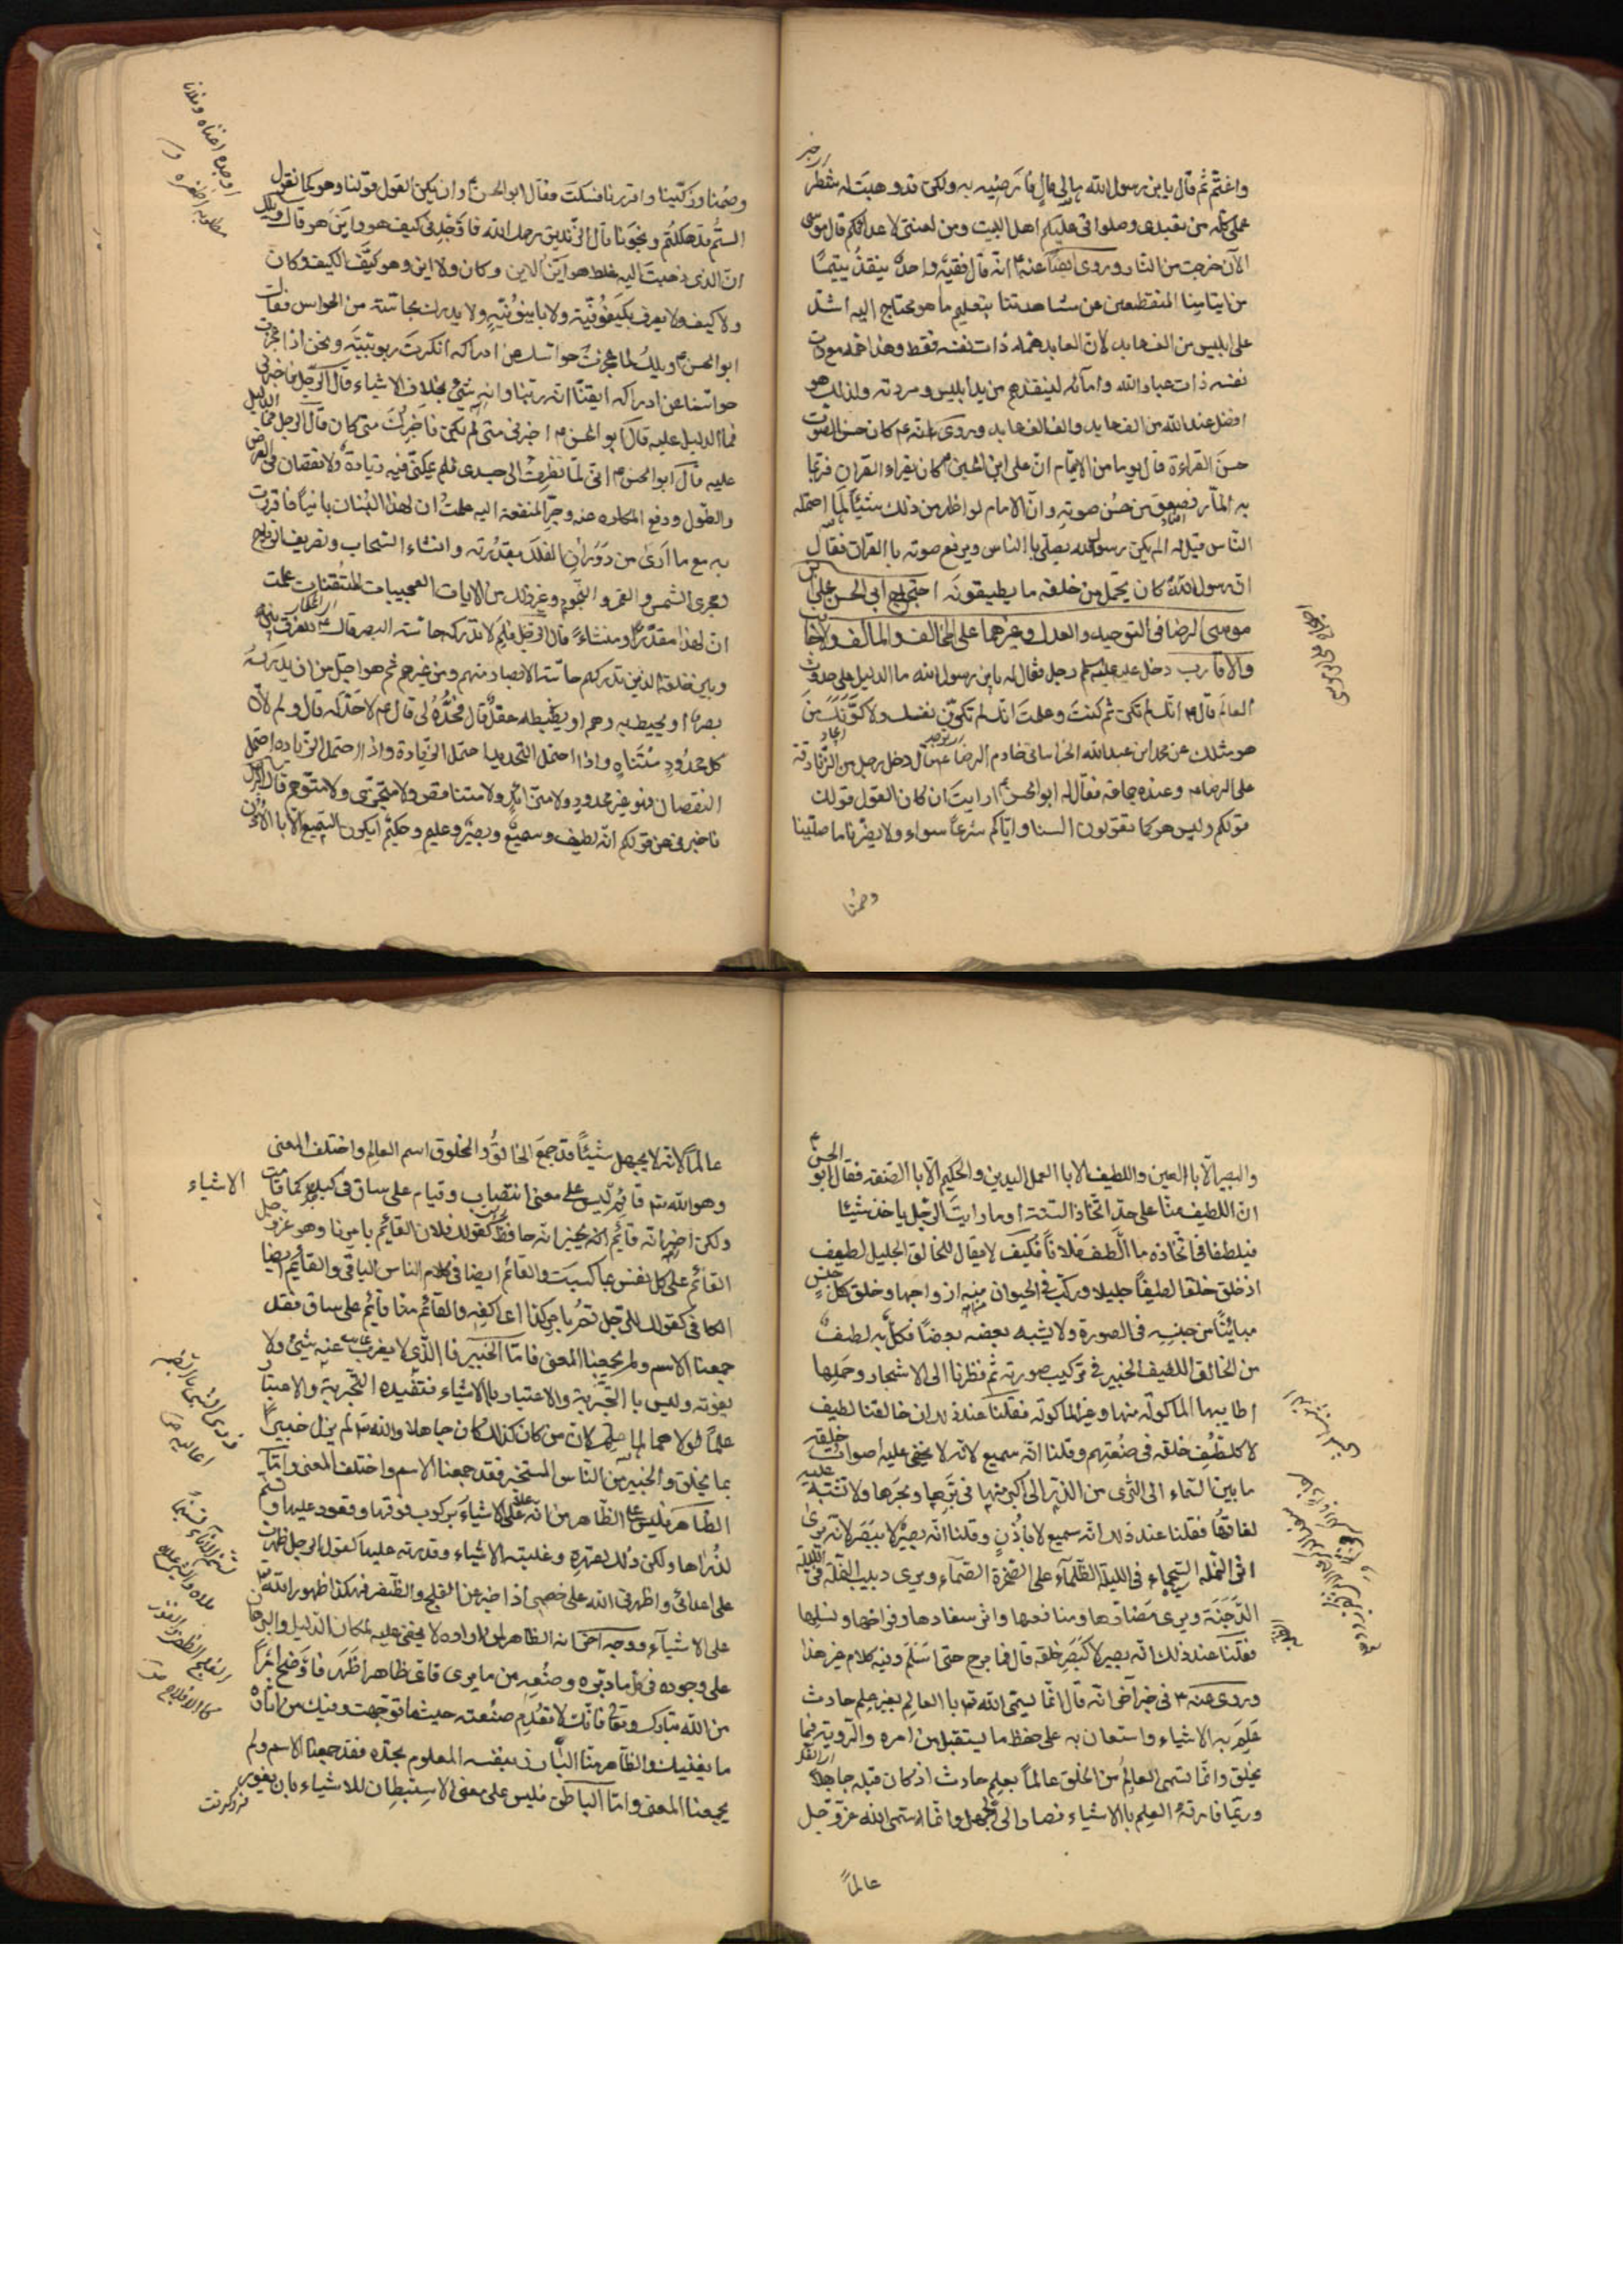 واغتمّ ثم قال يابن رسول الله مالي مال فارضيه به ولكن قد وهبت له شطر
عملي كله من تعبدي وصلواتي عليكم اهل البيت ومن لعنتي لاعدائكم قال موسى
الآن خرجت من النار وروى ايضا عنه انه قال فقيه واحد ينقذ يتيما
من ايتامنا المنقطعين عن مشاهدتنا بتعليم ما هو محتاج اليه اشد
على ابليس من الف عابد لان العابد همه ذات نفسه فقط وهذا همه مع ذات
نفسه ذات عباد الله وامائه لينقذهم من يد ابليس ومردته ولذلك هو
افضل عند الله من الف عابد والف الف عابد وروى انه ع كان حسن الصوت
حسن القراءة قال يوما من الايام ان على ابن الحسين كان يقراء القران فربما
به المار فصعق من حسن صوته وان الامام لو اظهر من ذلك شيئا لما احتمله
الناس قيل له الم يكن رسول الله يصلى بالناس ويرفع صوته باالقران فقال
ان رسول الله كان يحمل من خلفه ما يطيقونه احتجاج ابى الحسن على بن
موسى الرضا فى التوحيد والعدل وغيرهما على المخالف والمالف والاجانب
والاقارب دخل عليه رجل فقال له يابن رسول الله ما الدليل على حدوث
العالم قال انك لم تكن ثم كنت وعلمت انك لم تكون نفسك ولا كونك من
هو مثلك عن محمد ابن عبدالله الخراسانى خادم الرضا قال دخل رجل من الزنادقة
على الرضا وعنده جماعة فقال له ابو الحسن ارايت ان كان القول قولكم
وليس هو كما تقولون السنا واياكم شرعا سواء ولا يضرنا ما صلينا
وصمنا
وصمنا وزكينا واقررنا فسكت فقال ابو الحسن وان يكن القول قولنا وهو كما نقول
الستم قد هلكتم ونجونا قال الزنديق رحمك الله فاوجدنى كيف هو واين هو قال ويلك
ان الذى ذهبت اليه غلط هو اين الاين وكان ولا اين وهو كيف الكيف وكان
ولا كيف ولا يعرف بكيفوفية ولا باينونية ولا يدرك بحاسة من الحواس فقال
ابو الحسن ويلك لما عجزت حواسك عن ادراكه انكرت ربوبيته ونحن اذا عجزت
حواسنا عن ادراكه ايقنا انه ربنا وانه شئ بخلاف الاشياء قال الرجل فاخبرنى
فما الدليل عليه قال ابو الحسن اخبرنى متى لم يكن فاخبرك متى كان قال الرجل فما الدليل
عليه قال ابو الحسن انى لما نظرت الى جسدى فلم يمكنى فيه زيادة ولا نقصان فى العرض
والطول ودفع المكاره عنه وجر المنفعة اليه علمت ان لهذا البنيان بانيا فاقررت
به مع ما ارى من دوران الفلك بقدرته وانشاء السحاب وتصريف الرياح
ومجرى الشمس والقمر والنجوم وغير ذلك من الايات العجيبات المتقنات علمت
ان لهذا مقدرا ومنشاء قال الرجل فلم لا تدركه حاسة البصر قال للفرق بينه
وبين خلقه الذين تدركهم حاسة الابصار منهم ومن غيرهم ثم هو اجل من ان يدركه
بصر او يحيط به وهم او يضبطه عقل قال فحده لى قال لا حد له قال ولم قال لان
كل محدود متناه واذا احتمل التحديد احتمل الزيادة واذا احتمل الزيادة احتمل
النقصان فهو غير محدود ولا متزايد ولا متناقص ولا متجزى ولا متوهم قال الرجل
فاخبرنى عن قولكم انه لطيف وسميع وبصير وعليم وحكيم ايكون السميع الا باالاذن
والبصير الا باالعين واللطيف الا باالعمل اليدين والحكيم الا باالصنعة فقال ابو الحسن
ان اللطيف منا على حد اتخاذ الصنعة او ما رايت الرجل ياخذ شيئا
فيلطف فى اتخاذه ما الطف فلانا فكيف لا يقال للخالق الجليل لطيف
اذ خلق خلقا لطيفا جليلا وركب فى الحيوان منه ازواجها وخلق كل جنس
مباينا من جنسه فى الصورة ولا يشبه بعضه بعضا فكل به لطف
من الخالق اللطيف الخبير فى تركيب صورته ثم نظرنا الى الاشجار وحملها
اطايبها الماكولة منها وغير الماكولة فقلنا عند ذلك ان خالقنا لطيف
لا كلطف خلقه فى صنعتهم وقلنا انه سميع لانه لا يخفى عليه اصوات خلقه
ما بين السماء الى الثرى من الذرة الى اكبر منها فى برها وبحرها ولا تشتبه عليه
لغاتها فقلنا عند ذلك انه سميع لا باذن وقلنا انه بصير لا ببصر لانه يرى
اثر النملة السحماء فى الليلة الظلماء على الصخرة الصماء ويرى دبيب النملة فى الليلة
الدجنة ويرى مضارها ومنافعها واثر سفادها وفراخها ونسلها
فقلنا عند ذلك انه بصير لا كبصر خلقه قال فما برح حتى اسلم وفيه كلام غير هذا
وروى عنه فى خبر آخر انه قال انما يسمى الله باالعالم بغير علم حادث
علم به الاشياء واستعان به على حفظ ما يستقبل من امره والروية فيما
يخلق وانما سمى العالم من الخلق عالما بعلم حادث اذ كان قبله جاهلا
وربما فارقه العلم باالاشياء فصار الى الجهل وانما سمى الله عز وجل
عالما
عالما لانه لا يجهل شيئا قد جمع الخالق والمخلوق اسم العالم واختلف المعنى
وهو الله قائم ليس على معنى انتصاب وقيام على ساق فى كبد كما قامت الاشياء
ولكن اخبر انه قائم يخبر انه حافظ كقولك فلان القائم بامرنا وهو عز وجل
القائم على كل نفس بما كسبت والقائم ايضا فى كلام الناس الباقى والقائم ايضا
الكافى كقولك للرجل قم بامر كذا اى اكفه والقائم منا قائم على ساق فقد
جمعنا الاسم ولم يجمعنا المعنى فاما الخبير فاالذى لا يعزب عنه شئ ولا
يفوته وليس باالتجربة والاعتبار باالاشياء فتفيده التجربة والاعتبار
علما لولاهما لما علم لان من كان كذلك كان جاهلا والله لم يزل خبيرا
بما يخلق والخبير من الناس المستخبر فقد جمعنا الاسم واختلف المعنى واما
الظاهر فليس على الظاهر من انه على الاشياء بركوب فوقها وقعود عليها وتسنم
لذراها ولكن ذلك لقهره وغلبته الاشياء وقدرته عليها كقول الرجل ظهرت
على اعدائى واظهرنى الله على خصمى اذا اخبر عن الفلج والظفر فهكذا ظهور الله
على الاشياء ووجه آخر انه الظاهر لمن اراده لا يخفى عليه لمكان الدليل والبرهان
على وجوده فى كل ما دبره وصنعه من ما يرى فاى ظاهر اظهر فاوضح امرا
من الله تبارك وتعالى فانك لا تعدم صنعته حيثما توجهت وفيك من اثاره
ما يغنيك والظاهر منا البارز بنفسه المعلوم بحده فقد جمعنا الاسم ولم
يجمعنا المعنى واما الباطن فليس على معنى الاستبطان للاشياء بان يغور